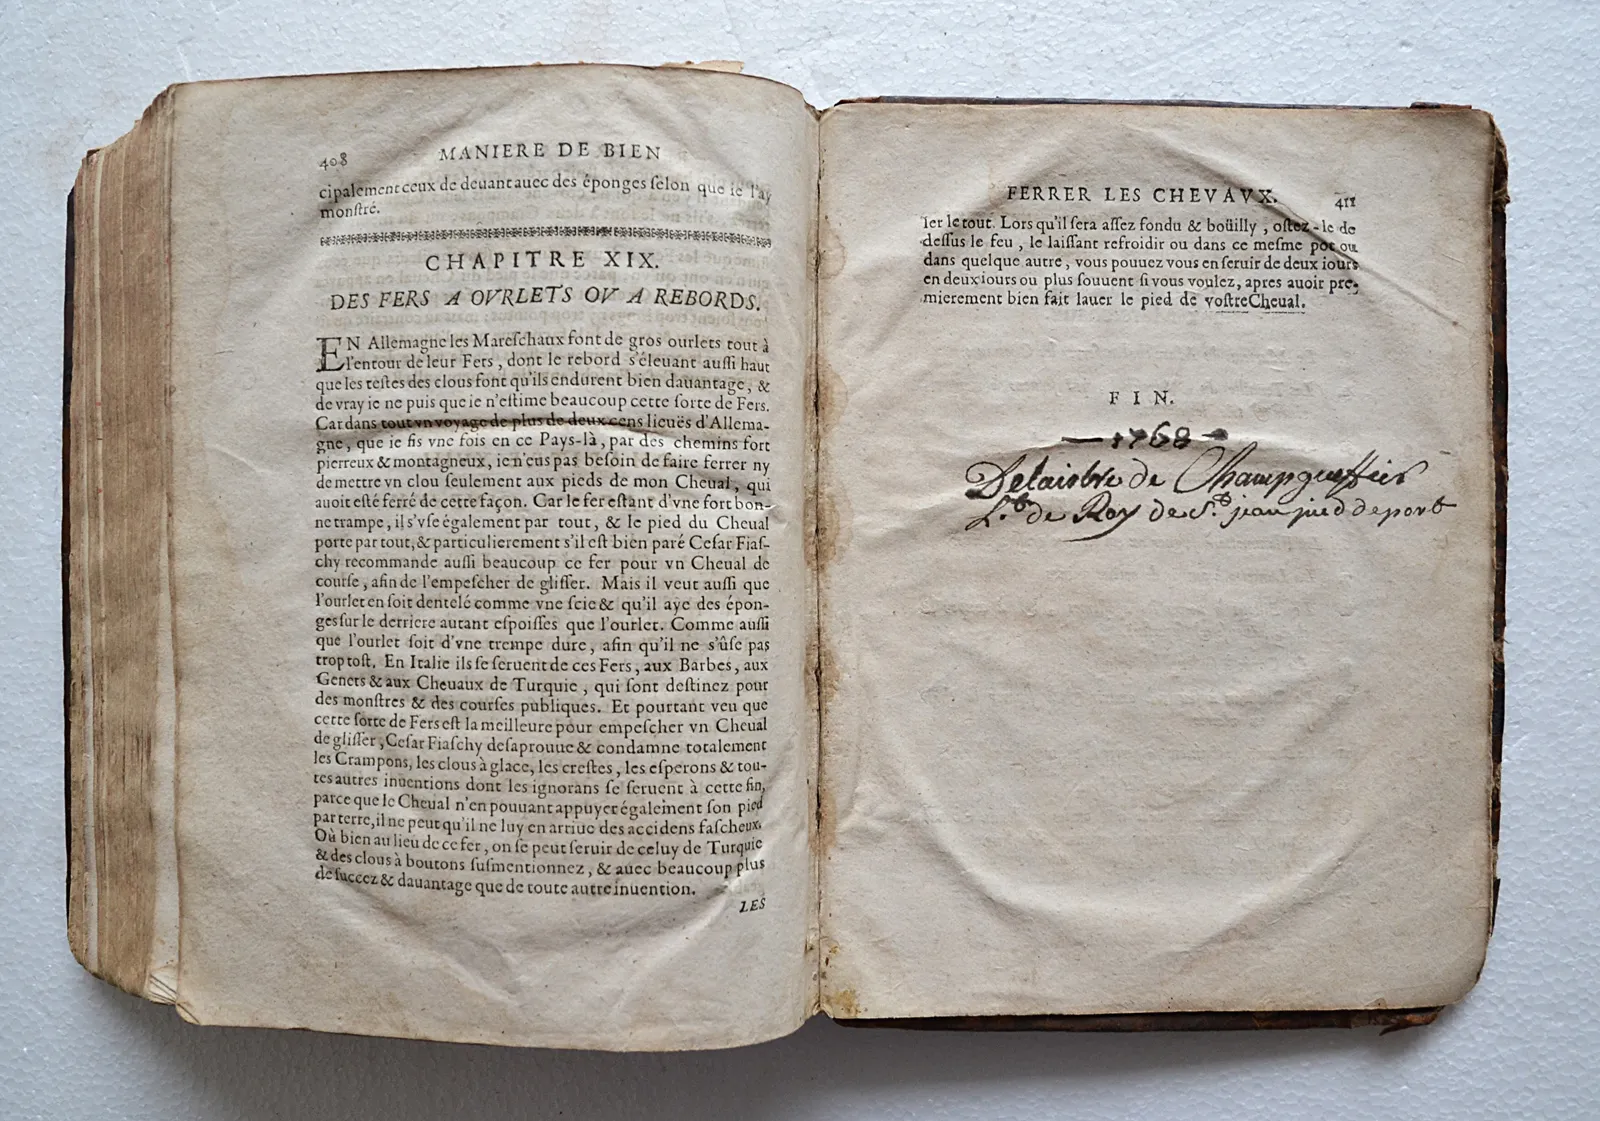 408 MANIERE DE BIEN
cipalement ceux de deuant auec des éponges ſelon que ie l'ay
monſtré.
CHAPITRE XIX.
DES FERS A OVRLETS OV A REBORDS.
EN Allemagne les Mareſchaux font de gros ourlets tout à
l'entour de leur Fers, dont le rebord s'éleuant auſſi haut
que les teſtes des clous font qu'ils endurent bien dauantage, &
de vray ie ne puis que ie n'eſtime beaucoup cette ſorte de Fers.
Car dans tout vn voyage de plus de deux cens lieuës d'Allema-
gne, que ie fis vne fois en ce Pays-là, par des chemins fort
pierreux & montagneux, ie n'eus pas beſoin de faire ferrer ny
de mettre vn clou ſeulement aux pieds de mon Cheual, qui
auoit eſté ferré de cette façon. Car le fer eſtant d'vne fort bon-
ne trampe, il s'vſe également par tout, & le pied du Cheual
porte par tout, & particulierement s'il eſt bien paré Ceſar Fiaſ-
chy recommande auſſi beaucoup ce fer pour vn Cheual de
courſe, afin de l'empeſcher de gliſſer. Mais il veut auſſi que
l'ourlet en ſoit dentelé comme vne ſcie & qu'il aye des épon-
ges ſur le derriere autant eſpoiſſes que l'ourlet. Comme auſſi
que l'ourlet ſoit d'vne trempe dure, afin qu'il ne s'ûſe pas
trop toſt. En Italie ils ſe ſeruent de ces Fers, aux Barbes, aux
Genets & aux Cheuaux de Turquie, qui ſont deſtinez pour
des monſtres & des courſes publiques. Et pourtant veu que
cette ſorte de Fers eſt la meilleure pour empeſcher vn Cheual
de gliſſer, Ceſar Fiaſchy deſaprouue & condamne totalement
les Crampons, les clous à glace, les creſtes, les eſperons & tou-
tes autres inuentions dont les ignorans ſe ſeruent à cette fin,
parce que le Cheual n'en pouuant appuyer également ſon pied
par terre, il ne peut qu'il ne luy en arriue des accidens faſcheux.
Où bien au lieu de ce fer, on ſe peut ſeruir de celuy de Turquie
& des clous à boutons ſuſmentionnez, & auec beaucoup plus
de ſuccez & dauantage que de toute autre inuention.
LES
FERRER LES CHEVAVX. 411
ler le tout. Lors qu'il ſera aſſez fondu & boüilly, oſtez-le de
deſſus le feu, le laiſſant refroidir ou dans ce meſme pot ou
dans quelque autre, vous pouuez vous en ſeruir de deux iours
en deux iours ou plus ſouuent ſi vous voulez, apres auoir pre-
mierement bien fait lauer le pied de voſtre Cheual.
FIN.
— 1768 —
Delaistre de Champgueffier
L.t de Roy de S.t jean pied de port